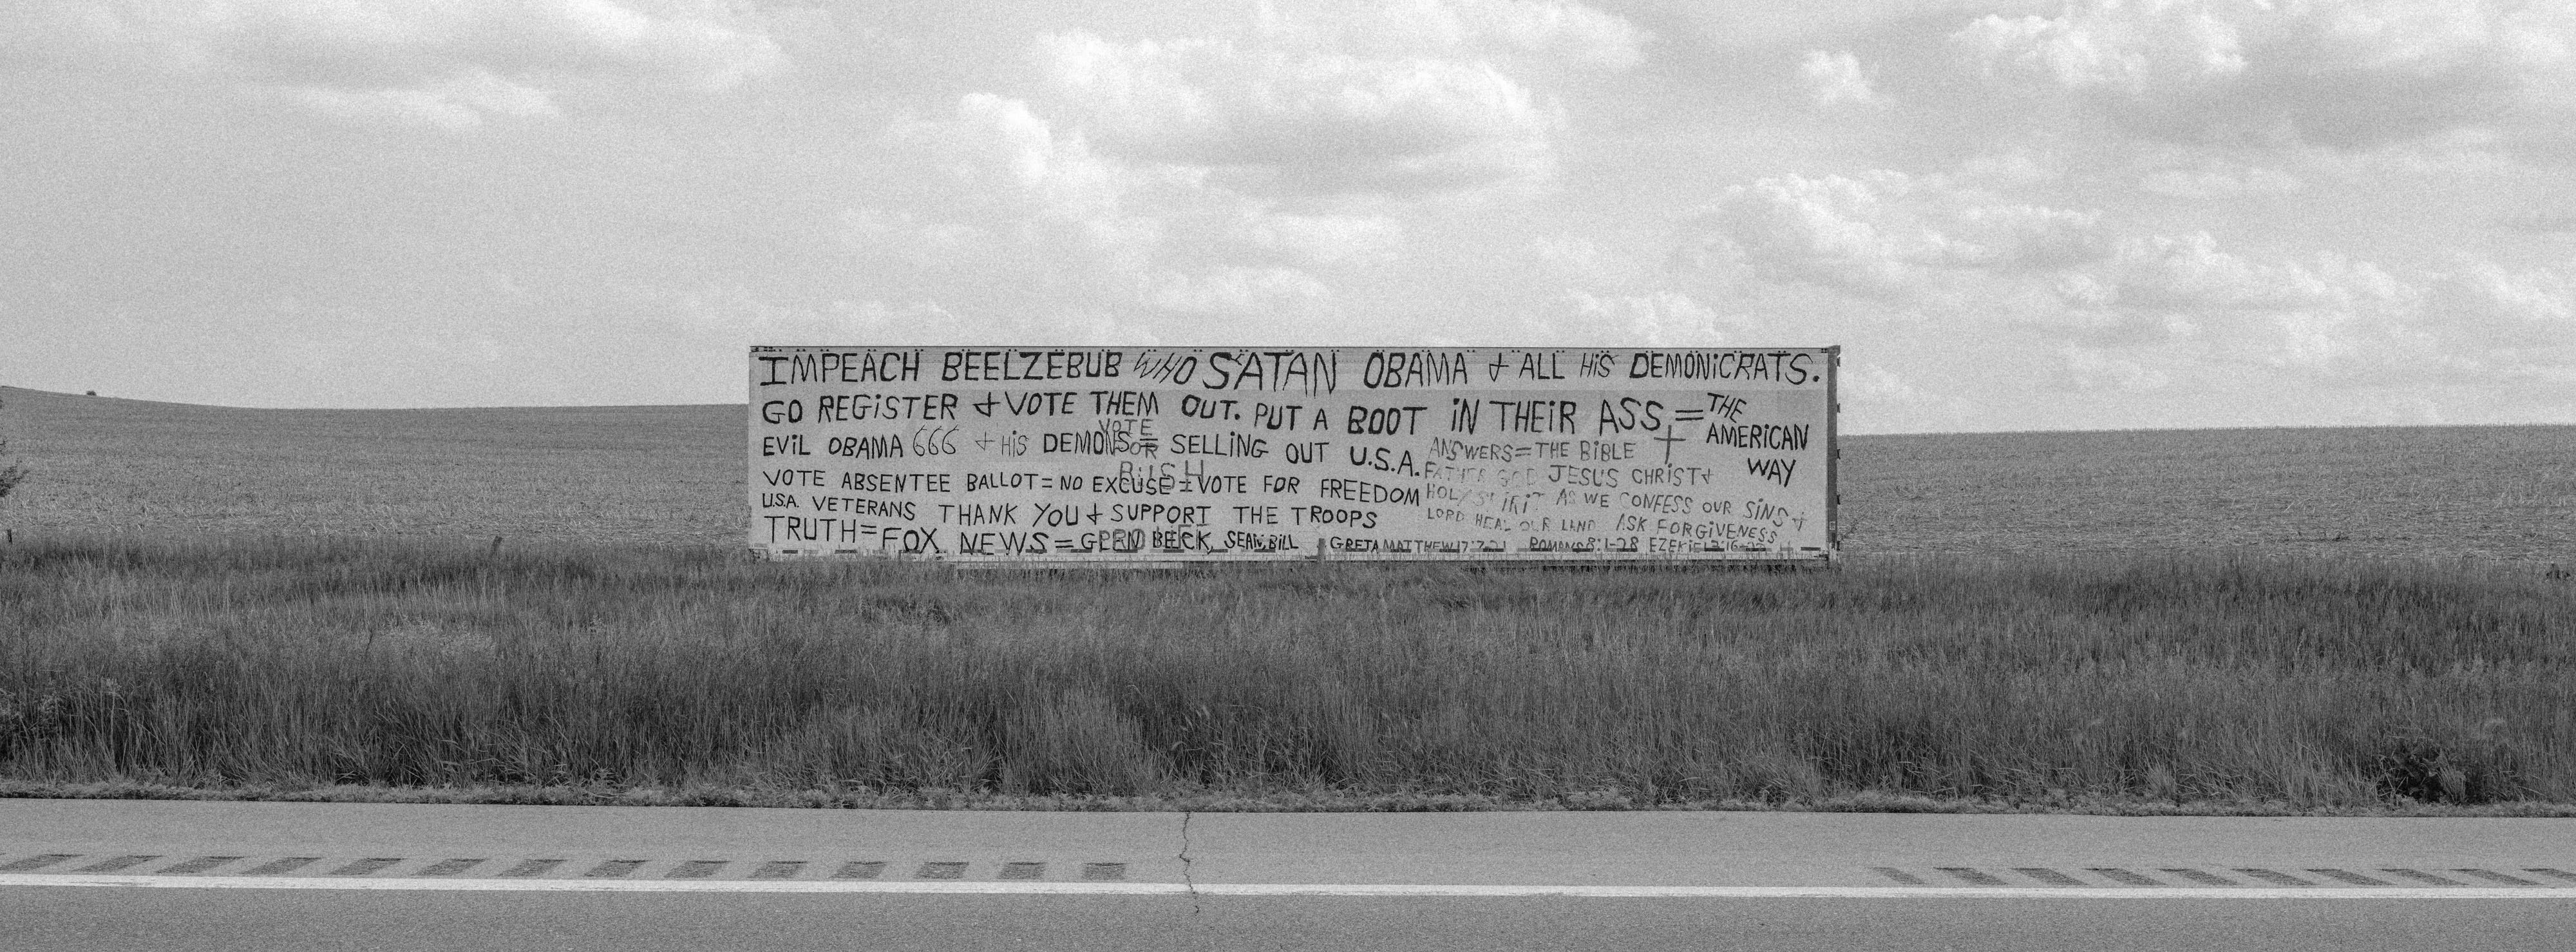 IMPEACH BEELZEBUB WHO SATAN OBAMA & ALL HIS DEMONICRATS.
GO REGISTER & VOTE THEM OUT. PUT A BOOT IN THEIR ASS = THE AMERICAN WAY
EVIL OBAMA 666 & HIS DEMONS = SELLING OUT U.S.A.
VOTE FOR BUSH
VOTE ABSENTEE BALLOT = NO EXCUSE = VOTE FOR FREEDOM
U.S.A. VETERANS THANK YOU & SUPPORT THE TROOPS
TRUTH = FOX NEWS = GLEN BECK, SEAN, BILL & GRETA
ANSWERS = THE BIBLE
FATHER GOD JESUS CHRIST &
HOLY SPIRIT AS WE CONFESS OUR SINS &
LORD HEAL OUR LAND ASK FORGIVENESS
MATTHEW 17:7-21 ROMANS 8:1-28 EZEKIEL